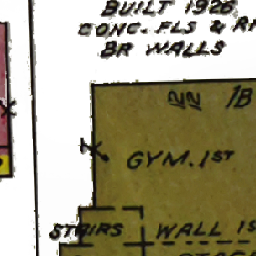 BUILT 1926
CONC. FLS &
BR WALLS
1B
GYM. 1ST
STAIRS WALL